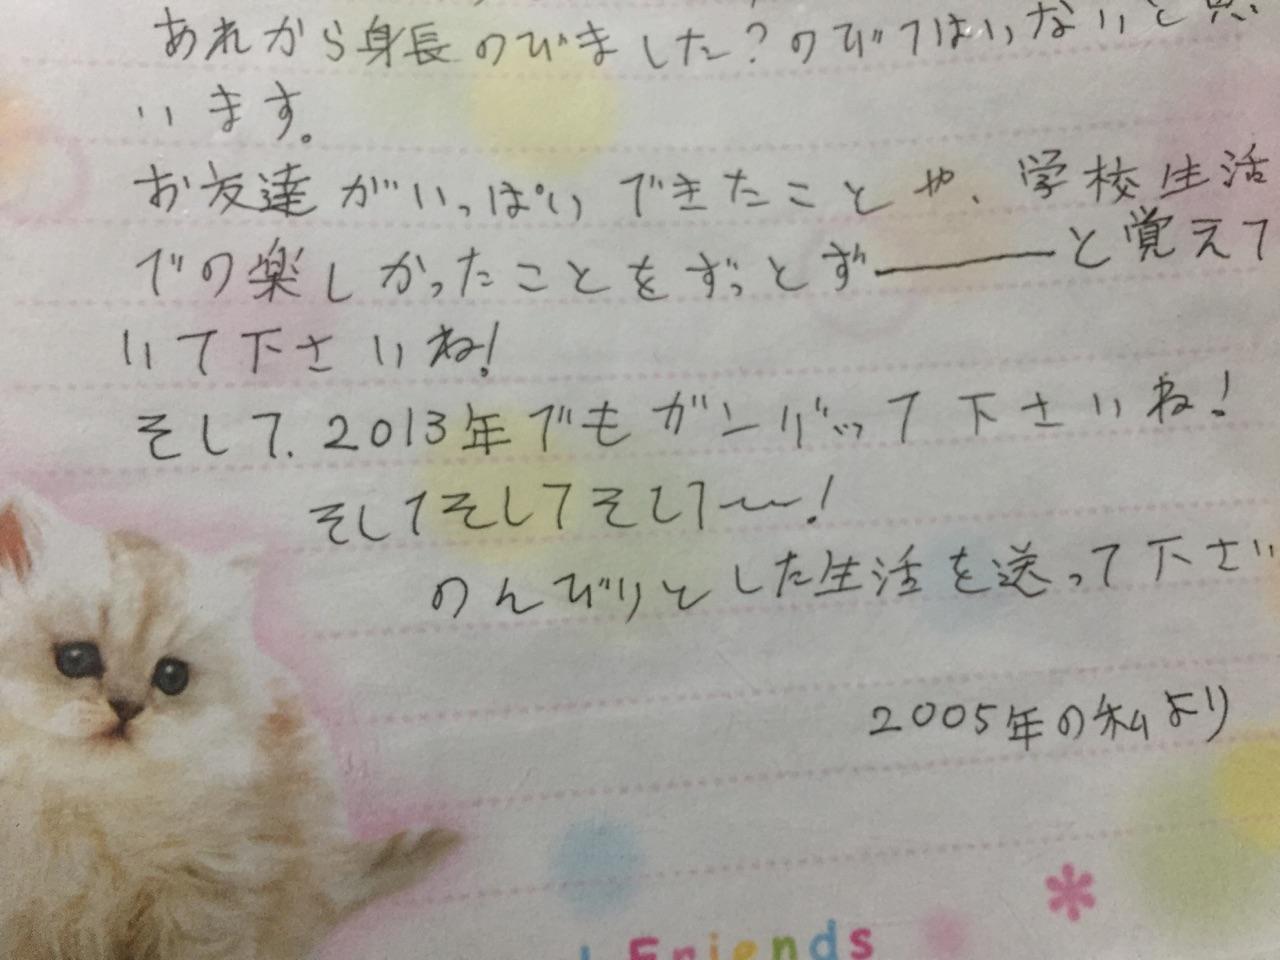 あれから身長のびました?のびてはいないと思
います。
お友達がいっぱいできたことや、学校生活
での楽しかったことをずっとず――――と覚えて
いて下さいね!
そして、2013年でもガンバって下さいね!
そしてそしてそして〜!
のんびりとした生活を送って下さい
2005年の私より
Friends